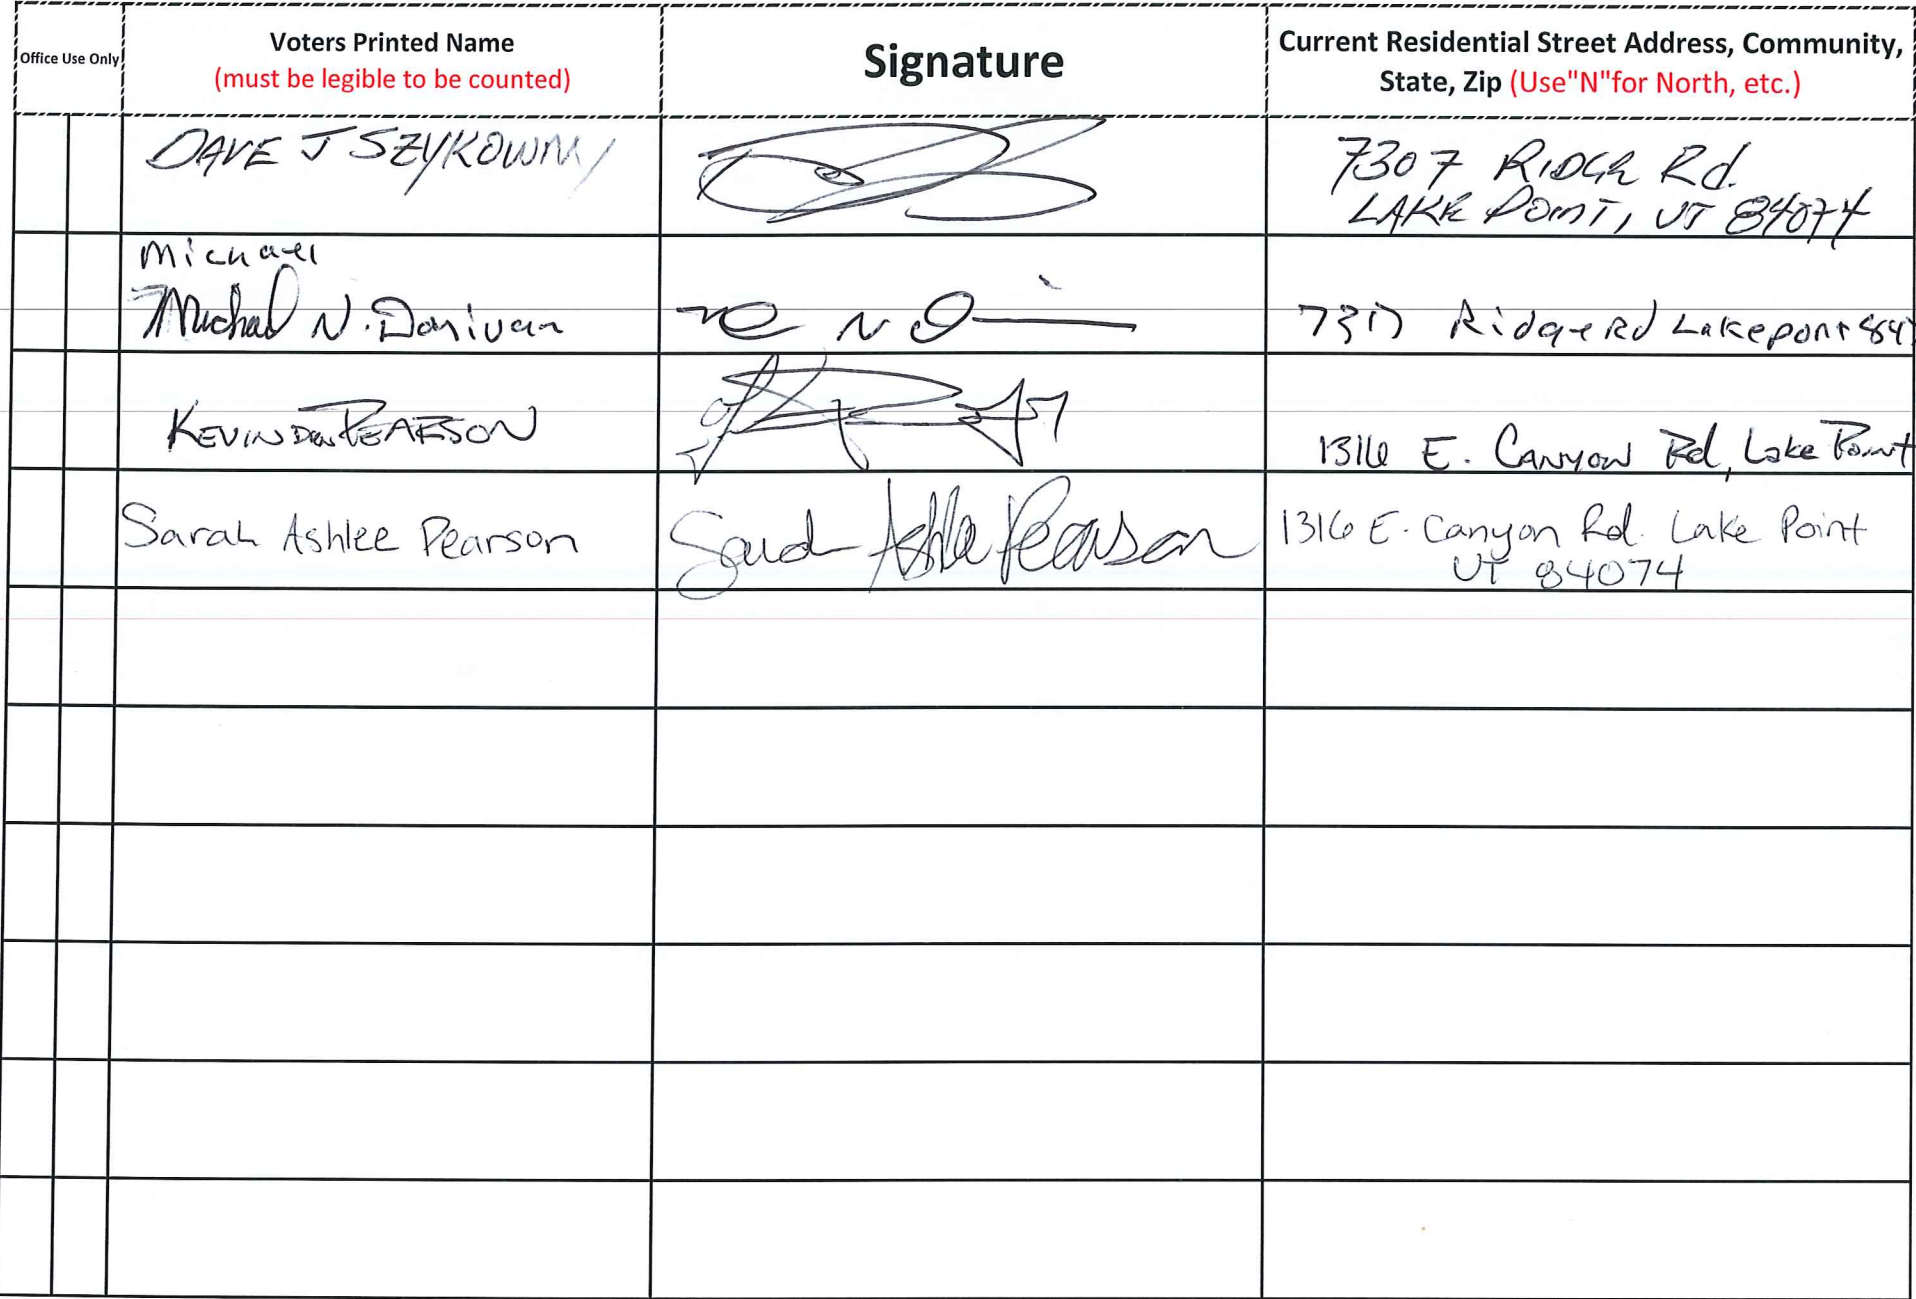 Office Use Only
Voters Printed Name
(must be legible to be counted)
Signature
Current Residential Street Address, Community,
State, Zip (Use"N"for North, etc.)
DAVE J SZYKOWNY
7307 RIDGE Rd.
LAKE POINT, UT 84074
Michael
Michael N. Donivan
Ridge Rd Lakepoint 84
KEVIN PEARSON
1316 E. CANYON Rd, Lake Point
Sarah Ashlee Pearson
Sarah Ashlee Pearson
1316 E. Canyon Rd. Lake Point
UT 84074